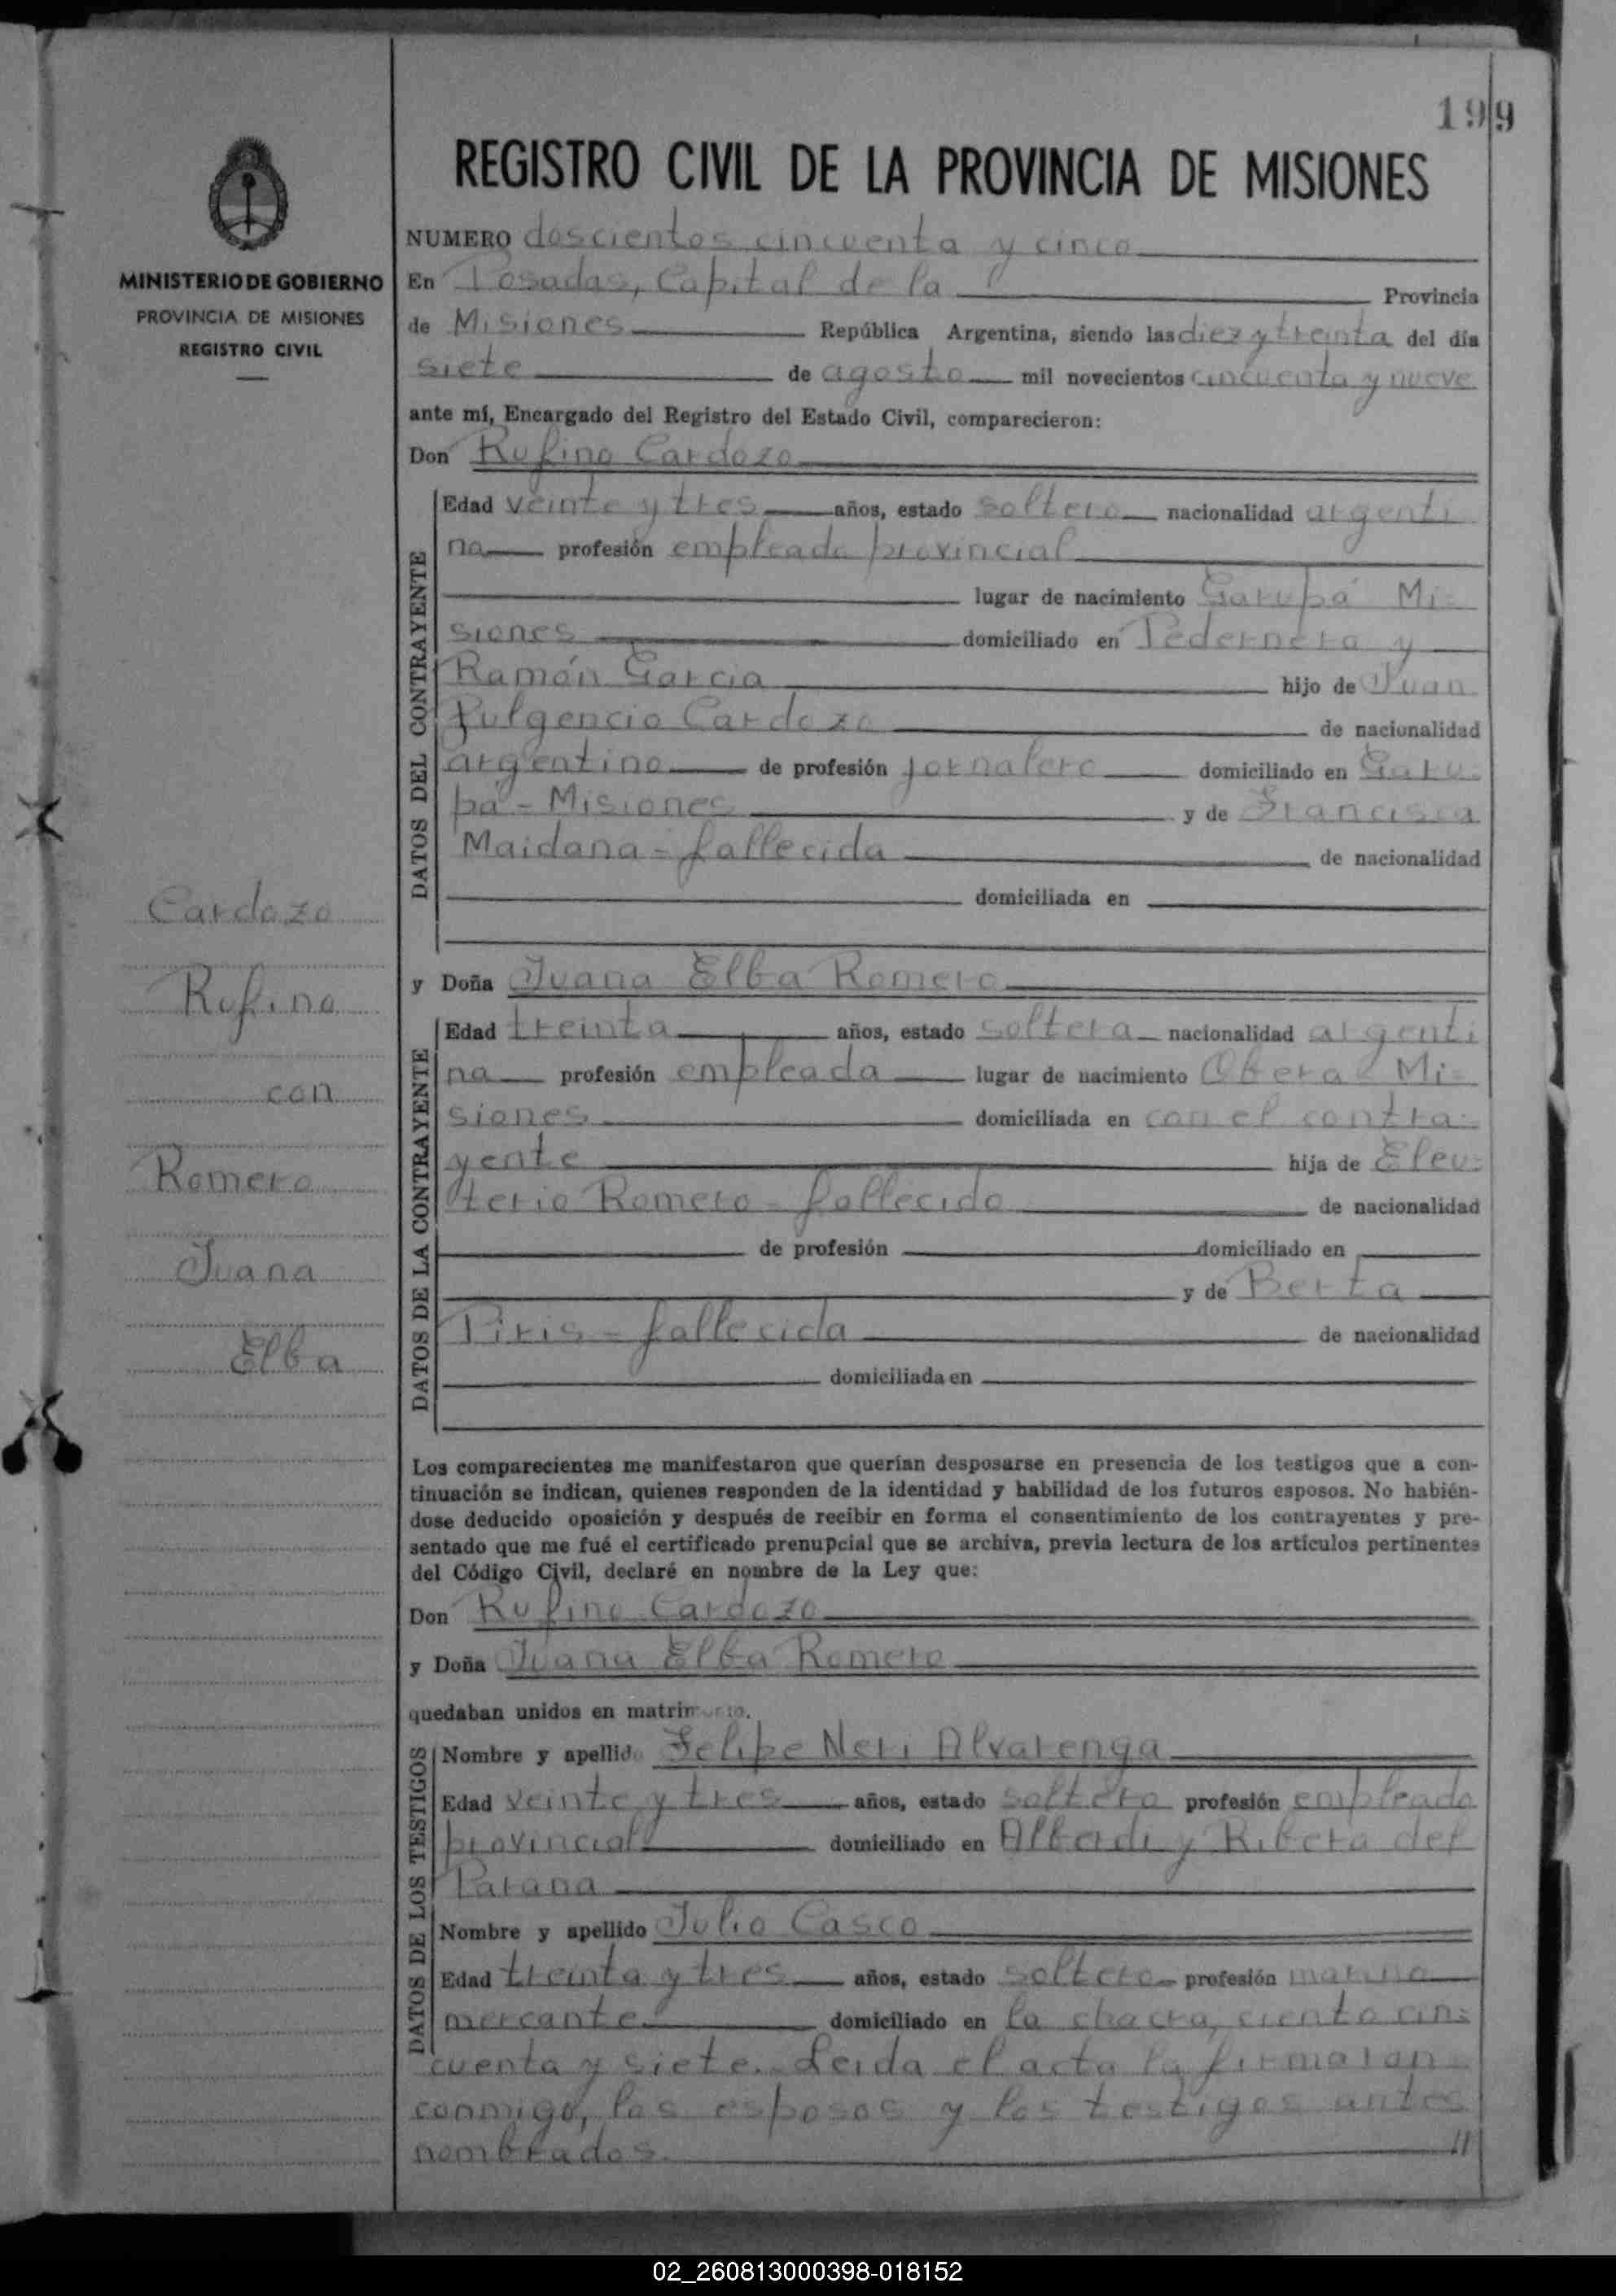 199
REGISTRO CIVIL DE LA PROVINCIA DE MISIONES
MINISTERIO DE GOBIERNO
PROVINCIA DE MISIONES
REGISTRO CIVIL
NUMERO doscientos cincuenta y cinco
En Posadas, Capital de la Provincia
de Misiones República Argentina, siendo las diez y treinta del día
siete de agosto mil novecientos cincuenta y nueve
ante mí, Encargado del Registro del Estado Civil, comparecieron:
Don Rufino Cardozo
DATOS DEL CONTRAYENTE
Edad veinte y tres años, estado soltero nacionalidad argenti
na profesión empleado provincial
lugar de nacimiento Garupá Mi-
siones domiciliado en Pedernera y
Ramón Garcia hijo de Juan
Fulgencio Cardozo de nacionalidad
argentino de profesión jornalero domiciliado en Garu-
pá - Misiones y de Francisca
Maidana - fallecida de nacionalidad
domiciliada en
Cardozo
Rufino
con
Romero
Juana
Elba
y Doña Juana Elba Romero
DATOS DE LA CONTRAYENTE
Edad treinta años, estado soltera nacionalidad argenti
na profesión empleada lugar de nacimiento Obera - Mi-
siones domiciliada en con el contra-
yente hija de Eleu-
terio Romero - fallecido de nacionalidad
de profesión domiciliado en
y de Berta
Piris - fallecida de nacionalidad
domiciliada en
Los comparecientes me manifestaron que querían desposarse en presencia de los testigos que a con-
tinuación se indican, quienes responden de la identidad y habilidad de los futuros esposos. No habién-
dose deducido oposición y después de recibir en forma el consentimiento de los contrayentes y pre-
sentado que me fué el certificado prenupcial que se archiva, previa lectura de los artículos pertinentes
del Código Civil, declaré en nombre de la Ley que:
Don Rufino Cardozo
y Doña Juana Elba Romero
quedaban unidos en matrimonio.
DATOS DE LOS TESTIGOS
Nombre y apellido Felipe Neri Alvarenga
Edad veinte y tres años, estado soltero profesión empleado
provincial domiciliado en Alberdi y Ribera del
Parana
Nombre y apellido Julio Casco
Edad treinta y tres años, estado soltero profesión marino
mercante domiciliado en la chacra, ciento cin-
cuenta y siete. Leida el acta la firmaron
conmigo, los esposos y los testigos antes
nombrados. //
02_260813000398-018152